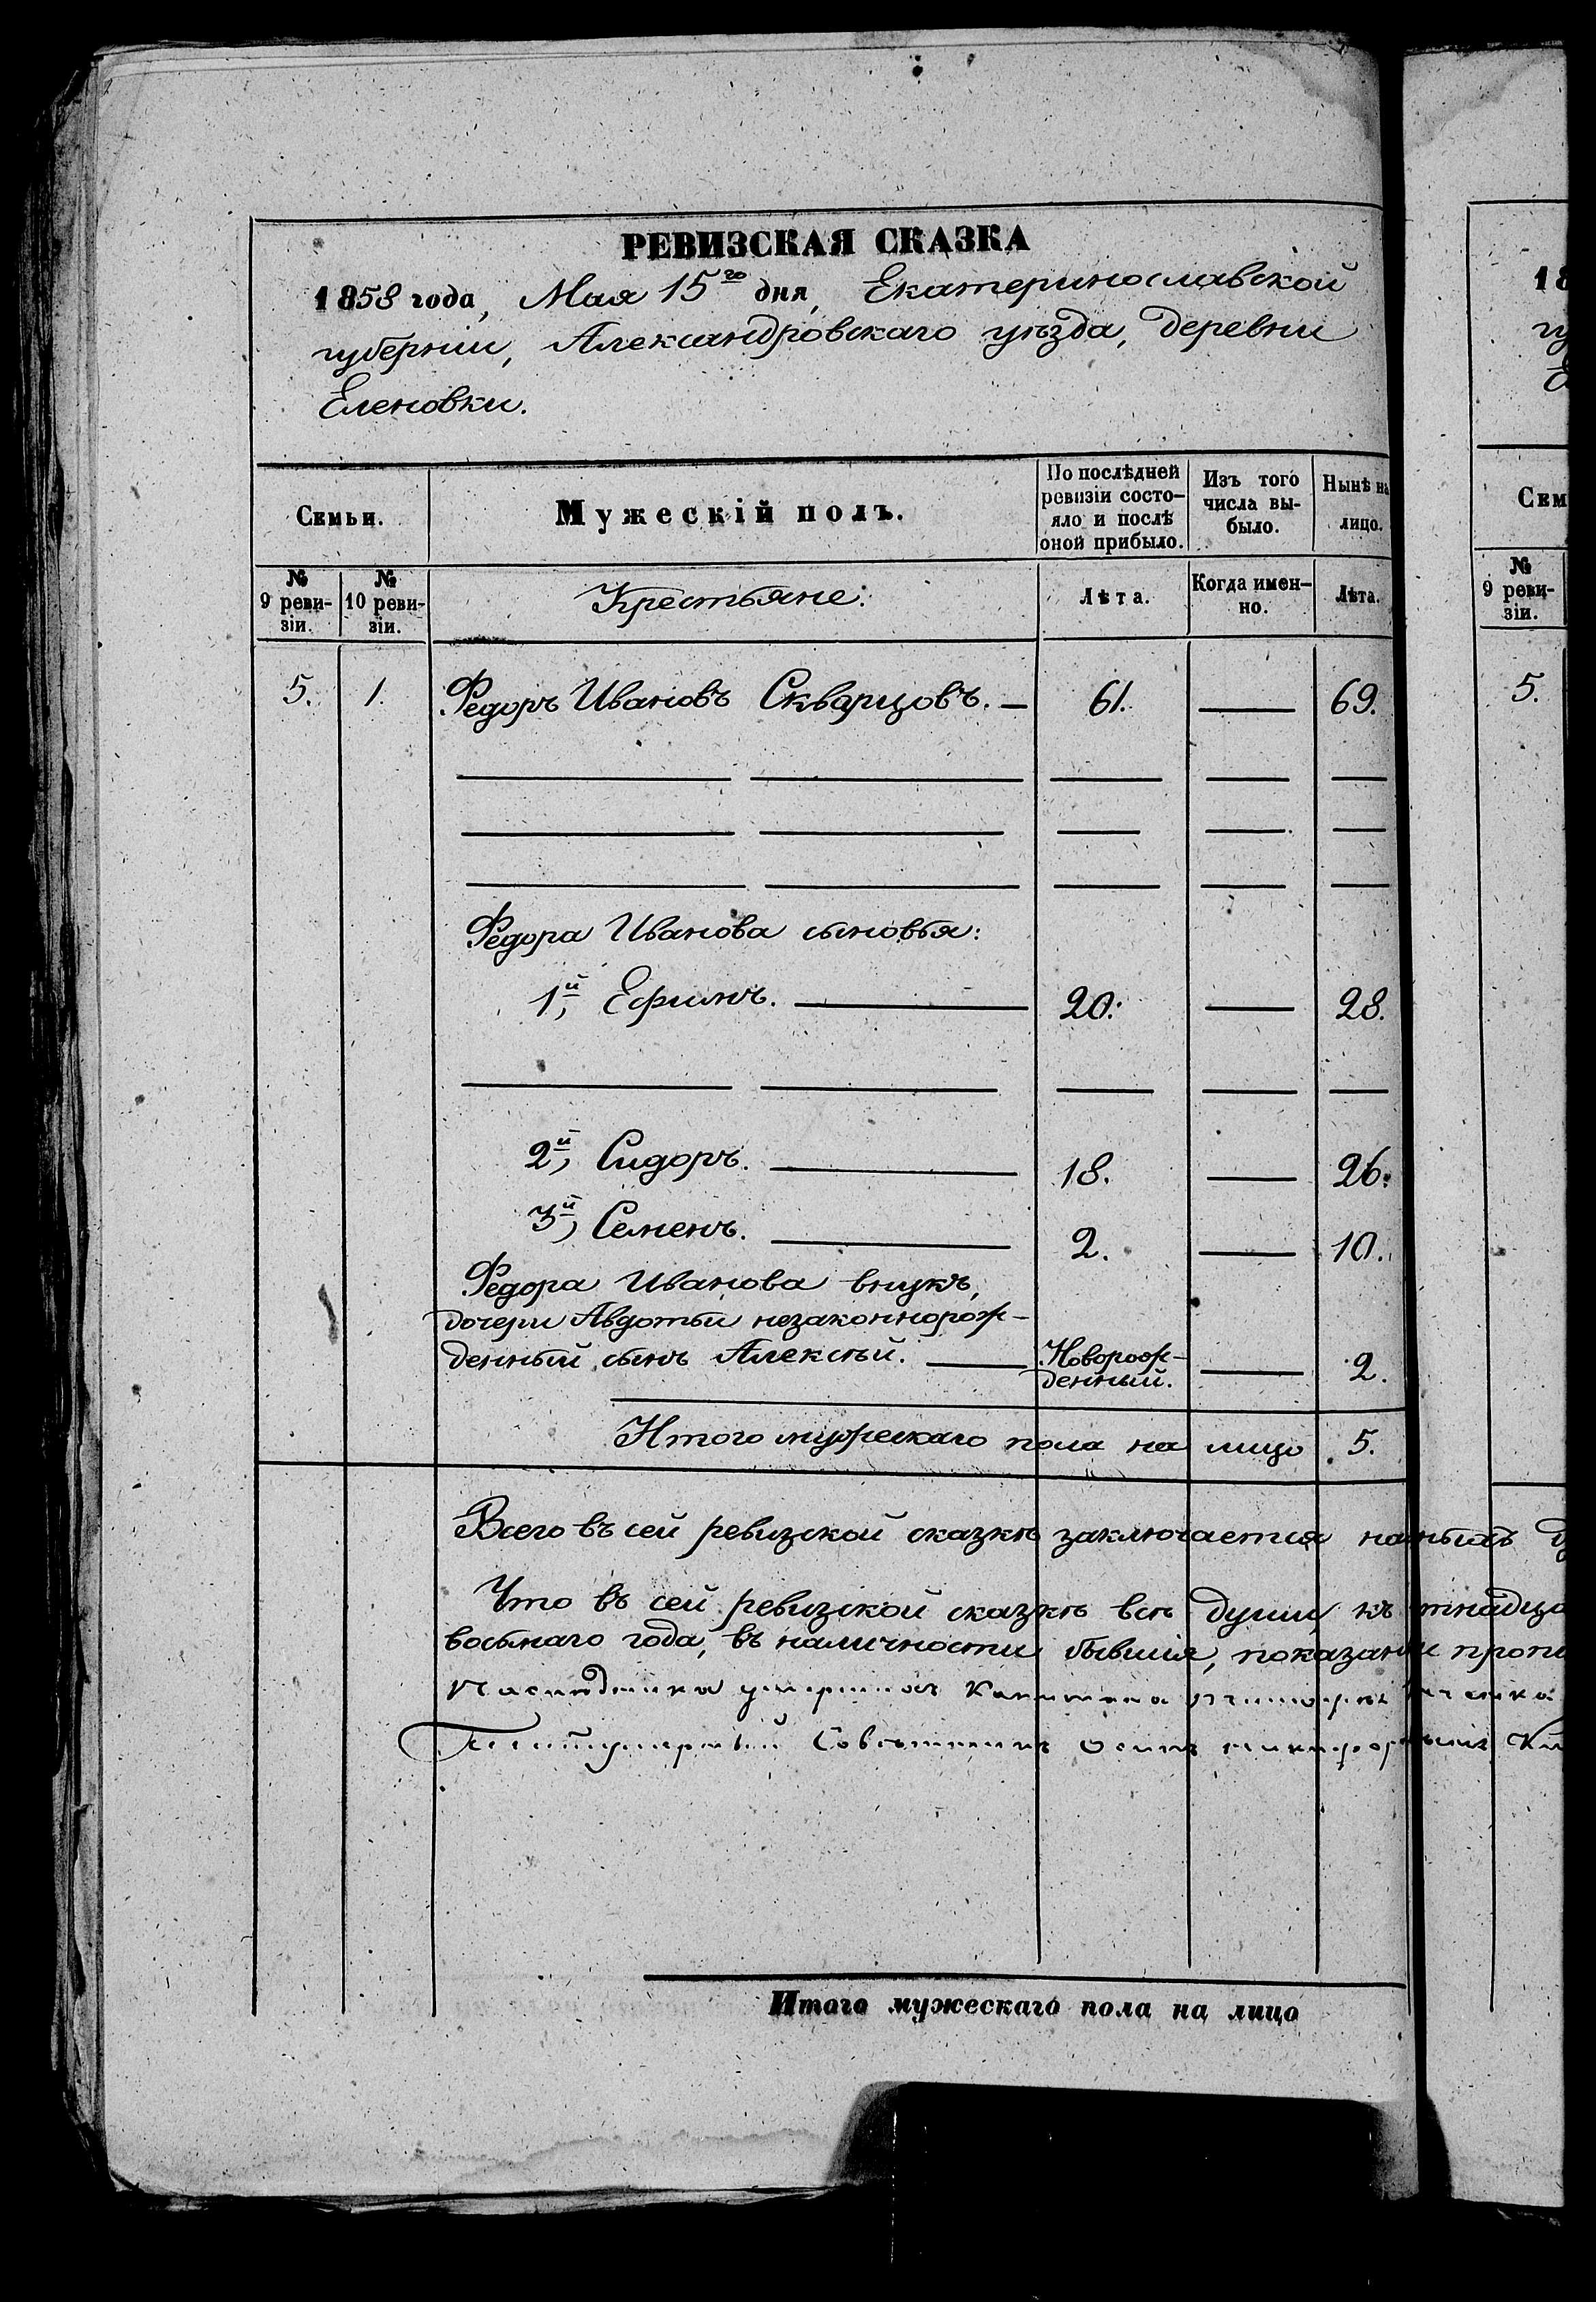 РЕВИЗСКАЯ СКАЗКА
1858 года, Мая 15го дня, Екатеринославской
губерніи, Александровскаго уѣзда, деревни
Еленовки.
Семьи.
Мужескій полъ.
По послѣдней ревизіи состо-
яло и послѣ
оной прибыло.
Изъ того
числа вы-
было.
Нынѣ на
лицо.
№
9 реви-
зіи.
№
10 реви-
зіи.
Крестьяне:
Лѣта.
Когда имен-
но.
Лѣта.
5. 1. Федоръ Ивановъ Скварцовъ. — 61. — 69.
Федора Иванова сыновья:
1й, Ефимъ. — 20. — 28.
2й, Сидоръ. — 18. — 26.
3й, Семенъ. — 2. — 10.
Федора Иванова внукъ,
дочери Авдотьи незаконнорож-
денный сынъ Алексѣй. — Новорож-
денный. — 2.
Итого мужескаго пола на лицо 5.
Всего въ сей ревизской сказкѣ заключается на
Что въ сей ревизской сказкѣ всѣ души, къ
восьмаго года, въ наличности бывшія, показаны
Титулярный Совѣтникъ Осипъ
Итого мужескаго пола на лицо
18
гу
Е
Сем
№
9 реви-
зіи.
5.